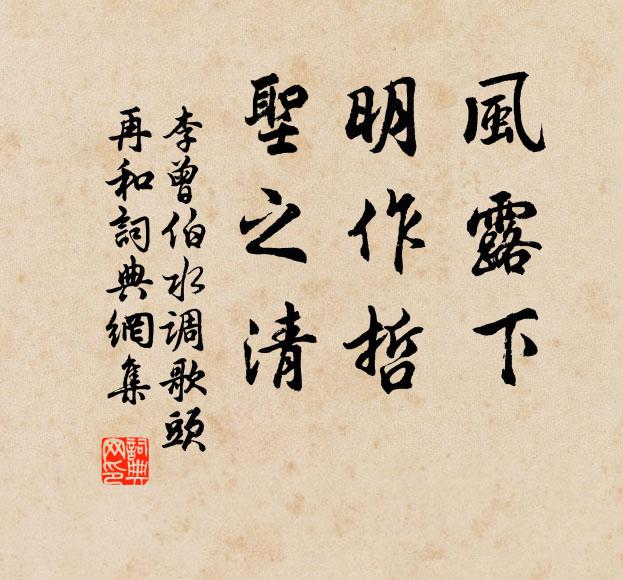 風露下
明作哲
聖之清
李曾伯水调歌頭
再和詞典網集
詞典
网印